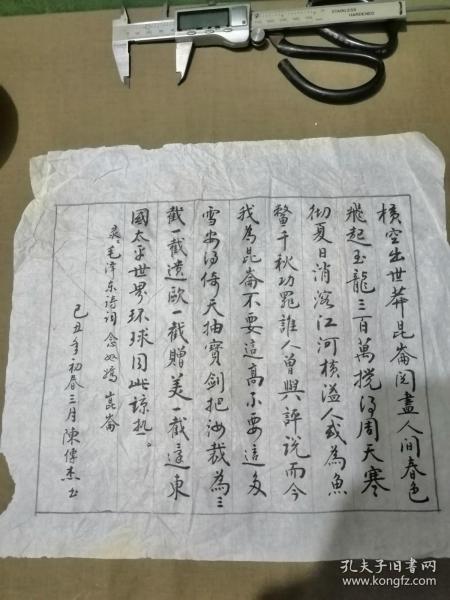 橫空出世莽崑崙閱盡人間春色
飛起玉龍三百萬攪得周天寒
彻夏日消溶江河橫溢人或為魚
鱉千秋功罪誰人曾與評说而今
我為崑崙不要這高不要這多
雪安得倚天抽寶劍把汝裁為三
截一截遺欧一截贈美一截還東
國太平世界环球同此凉热。
毛泽东诗词念奴嬌崑崙
己丑年初春三月陳傳杰书
STAINLESS
HARDENED
孔夫子旧书网
www.kongfz.com